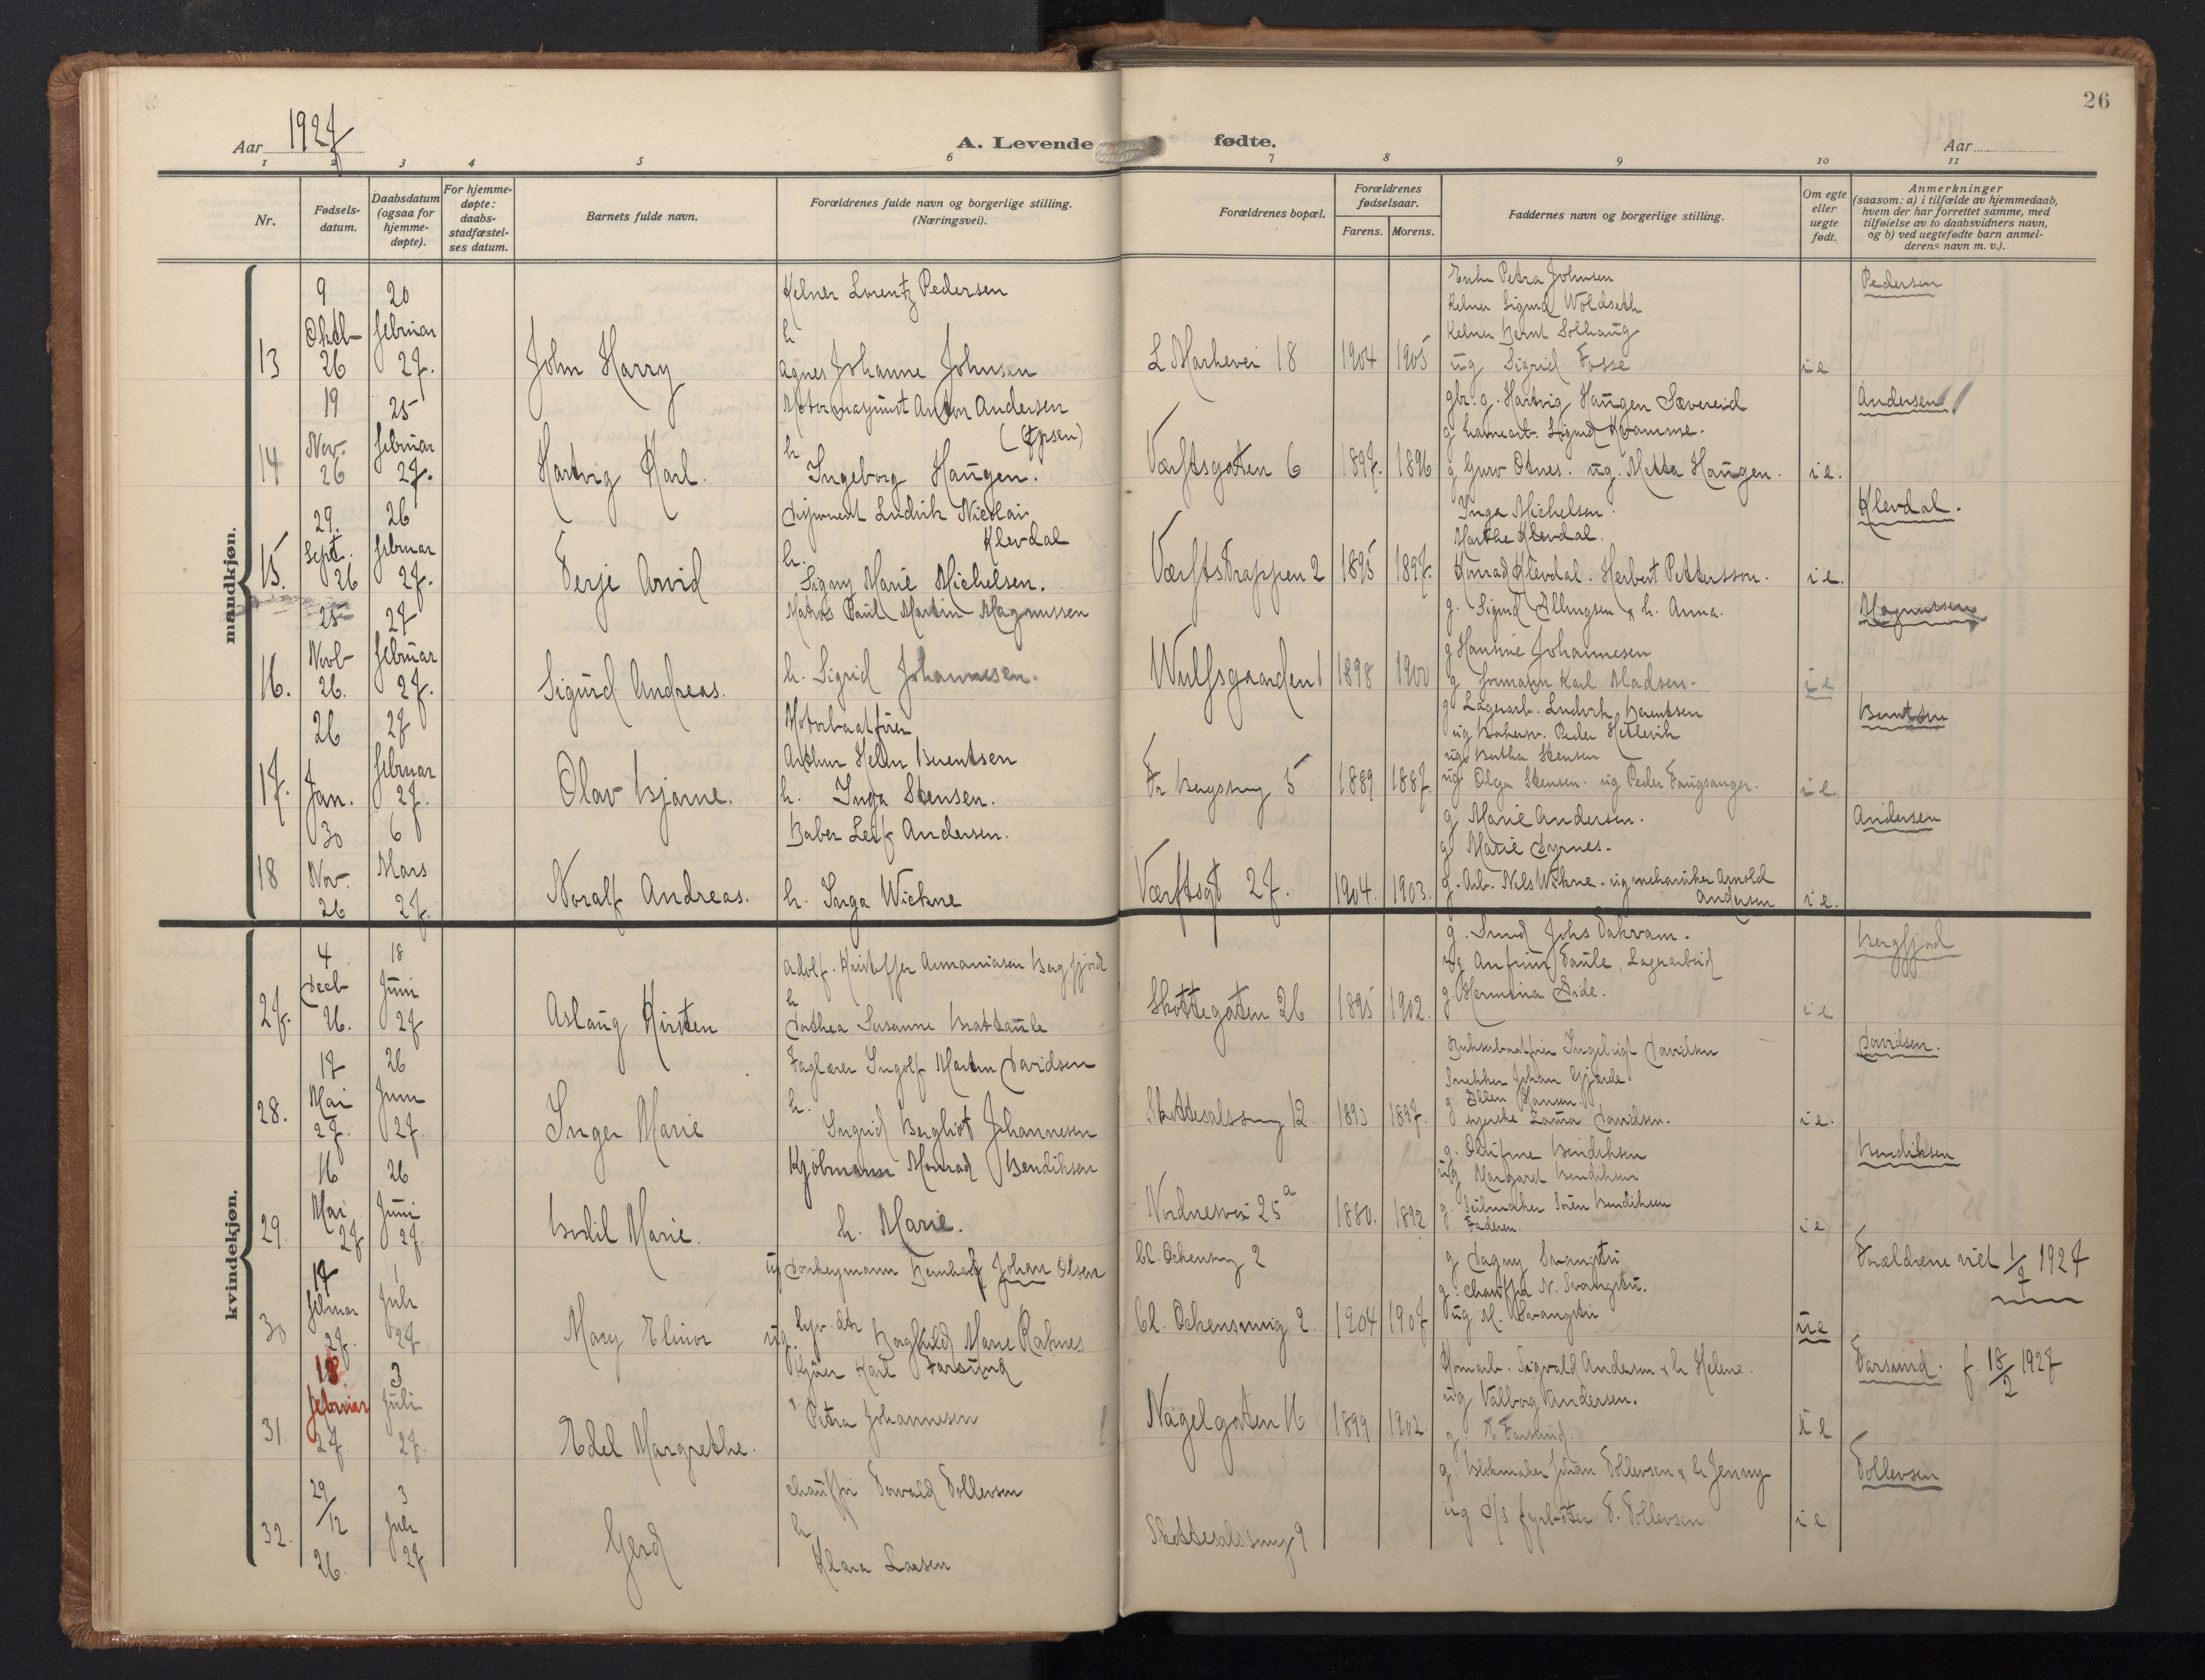 26
Aar 1927
A. Levende fødte.
Aar
1 2 3 4 5 6 7 8 9 10 11
Nr.
Fødsels-
datum.
Daabsdatum
(ogsaa for
hjemme-
døpte).
For hjemme-
døpte:
daabs-
stadfæstel-
ses datum.
Barnets fulde navn.
Forældrenes fulde navn og borgerlige stilling.
(Næringsvei).
Forældrenes bopæl.
Forældrenes
fødselsaar.
Farens. Morens.
Faddernes navn og borgerlige stilling.
Om egte
eller
uegte
født.
Anmerkninger
(saasom: a) i tilfælde av hjemmedaab,
hvem der har forrettet samme, med
tilføielse av to daabsvidners navn,
og b) ved uegtefødte barn anmel-
derens navn m. v.).
mandkjøn.
13
9
Oktb
26
20
februar
27.
John Harry
Kelner Lorentz Pedersen
h
Agnes Johanne Johnsen
L Markevei 18
1904 1905
Enke Petra Johnsen
Kelner Sigurd Woldseth
Kelner Bernt Solhaug
ug Sigrid Fosse
i e
Pedersen
14
19
Nov.
26
25
februar
27.
Hartvig Karl.
Motormaskinist Anton Andersen
h
Ingeborg Haugen.
Værftsgaten 6
1897. 1896
g. Hartvig Haugen Sævereid
g havnearb. Sigurd Kvamme.
g Guro Otnes. ug. Metta Haugen.
i e.
Andersen
15.
29.
Sept.
26
26
februar
27.
Terje Arvid
Disponent Ludvik Nicolai
Klevdal
h.
Signy Marie Michelsen.
Værftstrappen 2
1895 1897.
Inga Michelsen
Marthe Klevdal.
Konrad Klevdal. Herbert Pettersson.
i e.
Klevdal.
16.
25
Novb
26.
27
februar
27.
Sigurd Andreas.
Matros Paul Martin Magnussen
h. Sigrid Johannesen.
Wulfsgaarden 1
1898 1900
g. Sigurd Ellingsen & h. Anna.
g Hansine Johannesen
g formann Karl Madsen.
i e
Magnussen
17.
26
Jan.
27
februar
27.
Olav Bjarne.
Motorbaatfører
Arthur Helm Berentsen
h. Inga Stensen.
5
1889 1887.
g Lagerarb. Ludvik Berentsen
ug Peder Hetlevik
ug Bertha Stensen
ug Olga Stensen. ug Peder Faugsanger.
i e.
Berntsen
18
30
Nov.
26
6
Mars
27.
Noralf Andreas.
Baber Leif Andersen.
h. Inga Wickne
Værftsgt 27.
1904. 1903.
g Marie Andersen.
g Marie Dyrnes.
g. Arb. Nils Wikne. ug mekaniker Arnold
Andersen
i e.
Andersen
kvindekjøn.
27.
4
Decb
26.
18
Juni
27
Aslaug Kirsten
Adolf Kristoffer Annaniasen Bergfjord
h
Dorthea Susanne Brattaule
Skottegaten 26
1895 1902.
g. Smed Johs Dakvam.
ug Anfinn Taule, Lagerarbeid
g. Hermina Eide.
i e
Bergfjord
28.
17
Mai
27.
26
Juni
27.
Inger Marie
Faglærer Ingolf Martin Davidsen
h.
Ingrid Bergliot Johannesen
12
1893 1897.
Ingebrigt Davidsen
Snekker Johan Gjærde
g. Ellen Hansen.
Laura Davidsen.
i e.
Davidsen.
29.
16
Mai
27
26
Juni
27.
Bodil Marie.
Kjøbmann Konrad Bendiksen
h. Marie.
Nordnesvei 25 a
1880. 1892
g. Olufine Bendiksen
ug Margaret Bendiksen
g. Seilmaker Søren Bendiksen
Faderen.
i e
Bendiksen
30
17
februar
27.
1
Juli
27
Mary Elinor
ug Donkeymann Bernhard Johan Olsen
ug. Borghild Marie Raknes
Cl. Ockensmug 2
Cl. Ockensmug 2.
1904 1907
g Dagny Svangstu
g. chauffør N. Svangstu.
ug M. Svangstu
ue
Forældrene viet 1/7 1927
31.
18
februar
27.
3
Juli
27.
Edel Margrethe.
Kjører Karl Farsund
Petra Johannesen
Nagelgaten 16
1899 1902
Sigvald Andersen & h Helene.
ug Valborg Andersen.
g. E. Farsund.
i e
Farsund. f. 18/2 1927
32.
29/12
26
3
Juli
27
Gerd
chauffør Torvald Tollevsen
h
Klara Larsen
9
g. Blokmaker Johan Tollevsen & h Jenny
ug D/S fyrbøter T. Tollevsen
i e
Tollevsen